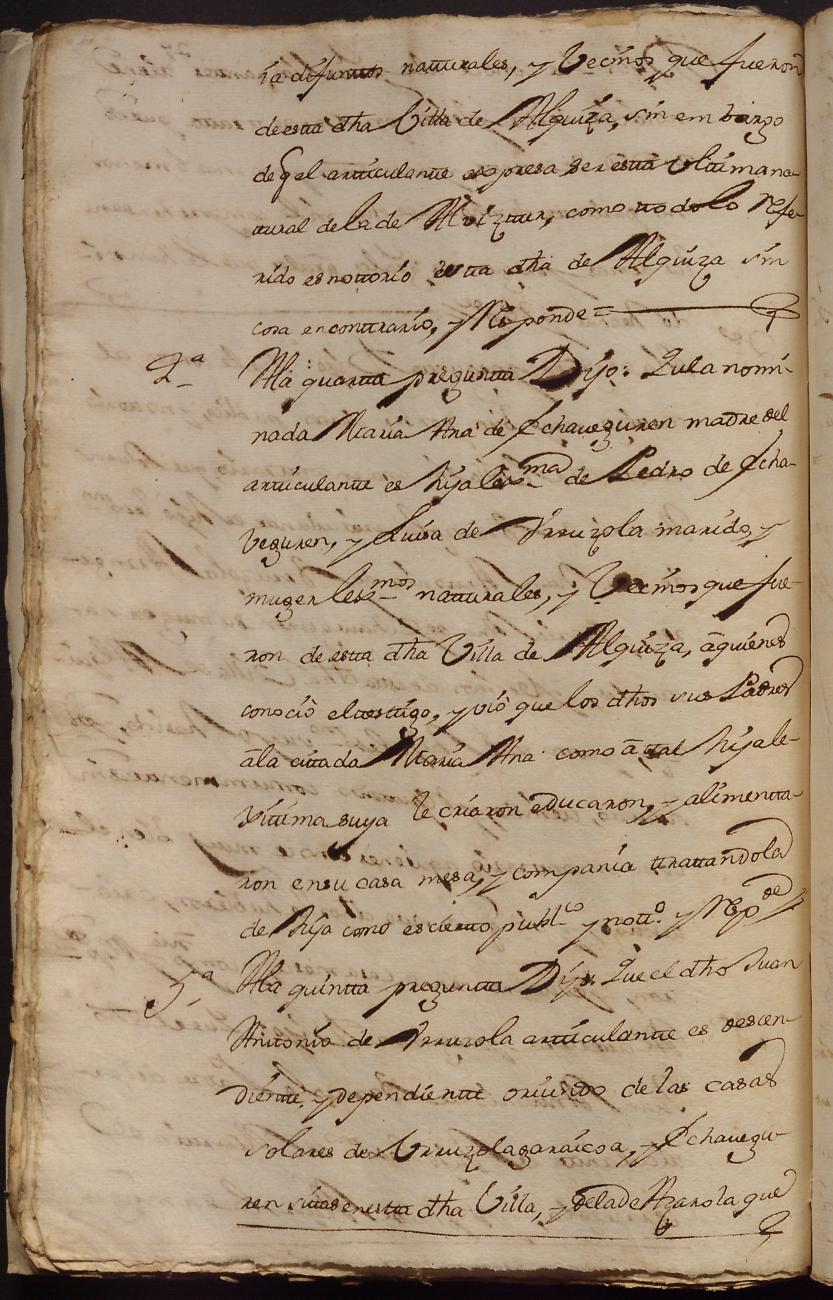 ia difuntos naturales, y Vecinos que fueron
de esta dha Villa de Alquiza, sin embargo
de q el articulante expresa ser esta Ultima na-
tural de la de Aviztur, como todo lo refe-
rido es nottorio en esta dha de Alquiza sin
cosa en conttrario, y Responde =
4ª A la quarta pregunta Dijo: Que la nomi-
nada Maria Ana de Echaveguren madre del
articulante es hija lexma de Pedro de Echa-
veguren, y Luisa de Vrruzola marido, y
muger lexmos naturales, y Vecinos que fue-
ron de esta dha Villa de Alquiza, a quienes
conocio el testigo, y vió que los dhos sus Padres
a la citada Maria Ana como a tal hija le-
xitima suya le criaron educaron, y alimenta-
ron en su casa mesa, y compania tratandola
de hija como es cierto publco y notto y Respde
5ª A la quinta pregunta Dijo: Que el dho Juan
Antonio de Vrruzola articulante es descen-
diente, y dependiente oriundo de las casas
solares de Vrruzolagaraicoa, y Echavegu-
ren sitas en esta dha Villa, y de la de Azarola que